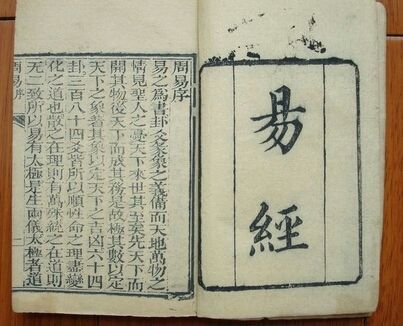 易經
周易序
易之爲書卦爻彖象之義備而天地萬物之
情見聖人之憂天下來世其至矣先天下而
開其物後天下而成其務是故極其數以定
天下之象著其象以定天下之吉凶六十四
卦三百八十四爻皆所以順性命之理盡變
化之道也散之在理則有萬殊統之在道則
无二致所以易有太極是生兩儀太極者道